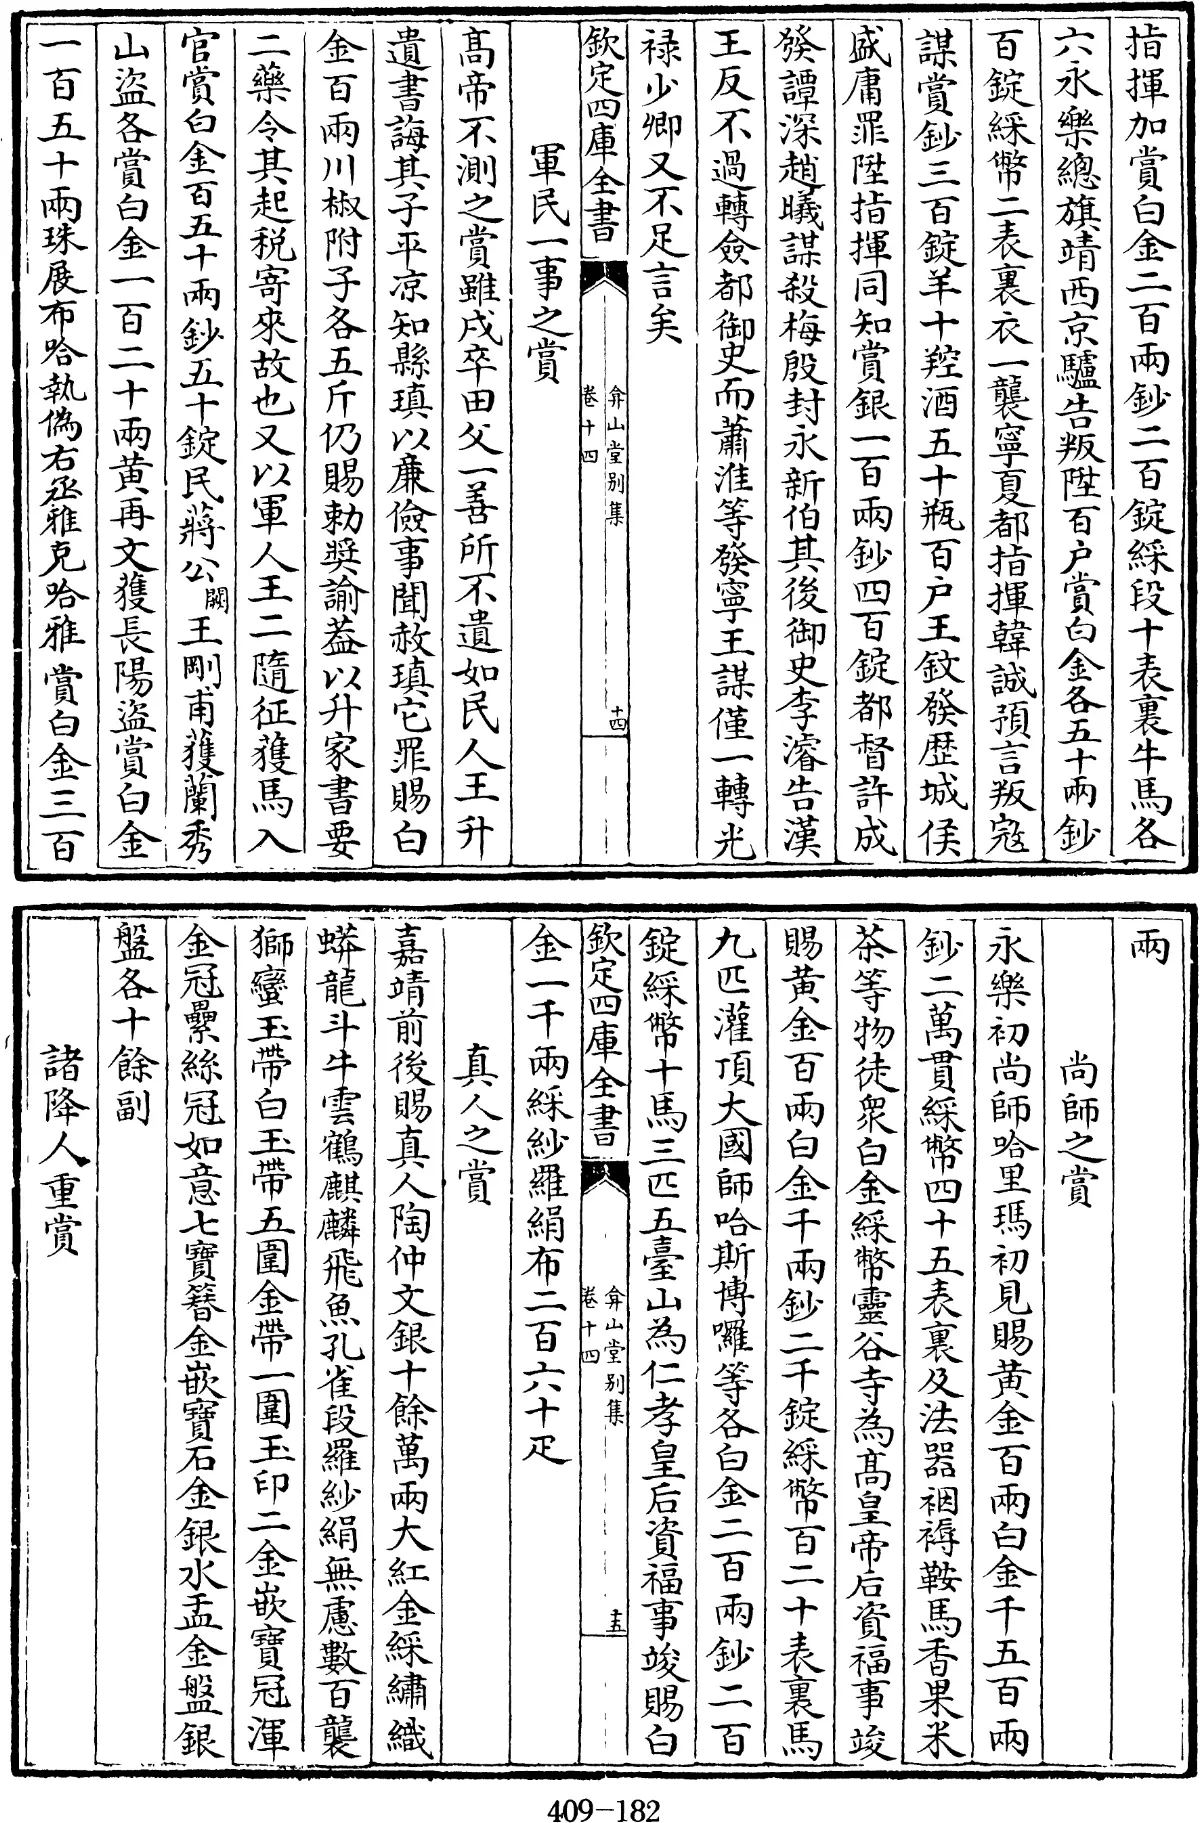 指揮加賞白金二百兩鈔二百錠綵段十表裏牛馬各
六永樂總旗靖西京驢告叛陞百户賞白金各五十兩鈔
百錠綵幣二表裏衣一襲寧夏都指揮韓誠預言叛冦
謀賞鈔三百錠羊十羫酒五十瓶百户王欽發歴城侯
盛庸罪陞指揮同知賞銀一百兩鈔四百錠都督許成
發譚深趙曦謀殺梅殷封永新伯其後御史李濬告漢
王反不過轉僉都御史而蕭淮等發寧王謀僅一轉光
禄少卿又不足言矣
欽定四庫全書
弇山堂别集
卷十四
十四
軍民一事之賞
髙帝不測之賞雖戍卒田父一善所不遺如民人王升
遺書誨其子平凉知縣瑱以廉儉事聞赦瑱它罪賜白
金百兩川椒附子各五斤仍賜勅奬諭葢以升家書要
二藥令其起税寄來故也又以軍人王二隨征獲馬入
官賞白金百五十兩鈔五十錠民蔣公闕王剛甫獲蘭秀
山盜各賞白金一百二十兩黄再文獲長陽盜賞白金
一百五十兩珠展布哈執偽右丞雅克哈雅賞白金三百
兩
尚師之賞
永樂初尚師哈里瑪初見賜黄金百兩白金千五百兩
鈔二萬貫綵幣四十五表裏及法器裀褥鞍馬香果米
茶等物徒衆白金綵幣靈谷寺為髙皇帝后資福事竣
賜黄金百兩白金千兩鈔二千錠綵幣百二十表裏馬
九匹灌頂大國師哈斯博囉等各白金二百兩鈔二百
錠綵幣十馬三匹五臺山為仁孝皇后資福事竣賜白
欽定四庫全書
弇山堂别集
卷十四
十五
金一千兩綵紗羅絹布二百六十疋
真人之賞
嘉靖前後賜真人陶仲文銀十餘萬兩大紅金綵繡織
蟒龍斗牛雲鶴麒麟飛魚孔雀段羅紗絹無慮數百襲
獅蠻玉帶白玉帶五圍金帶一圍玉印二金嵌寶冠渾
金冠纍絲冠如意七寶簪金嵌寶石金銀水盂金盤銀
盤各十餘副
諸降人重賞
409-182